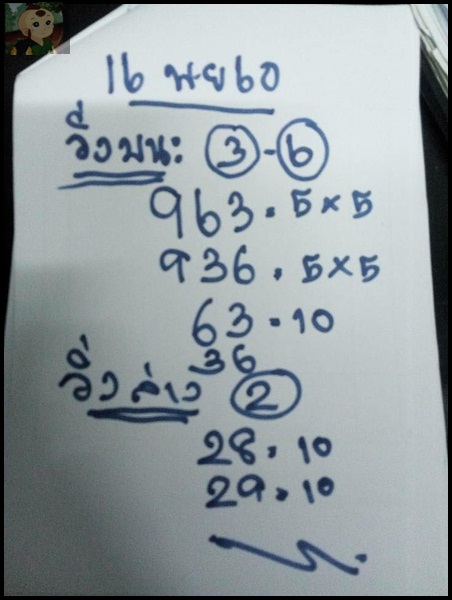 16 พย 60
วิ่งบน: 3-6
963. 5×5
936. 5×5
63. 10
36
วิ่งล่าง 2
28. 10
29. 10